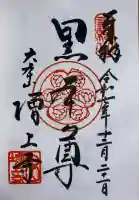 奉拝
令和元年十二月二十二日
黒本尊
大本山
増上寺